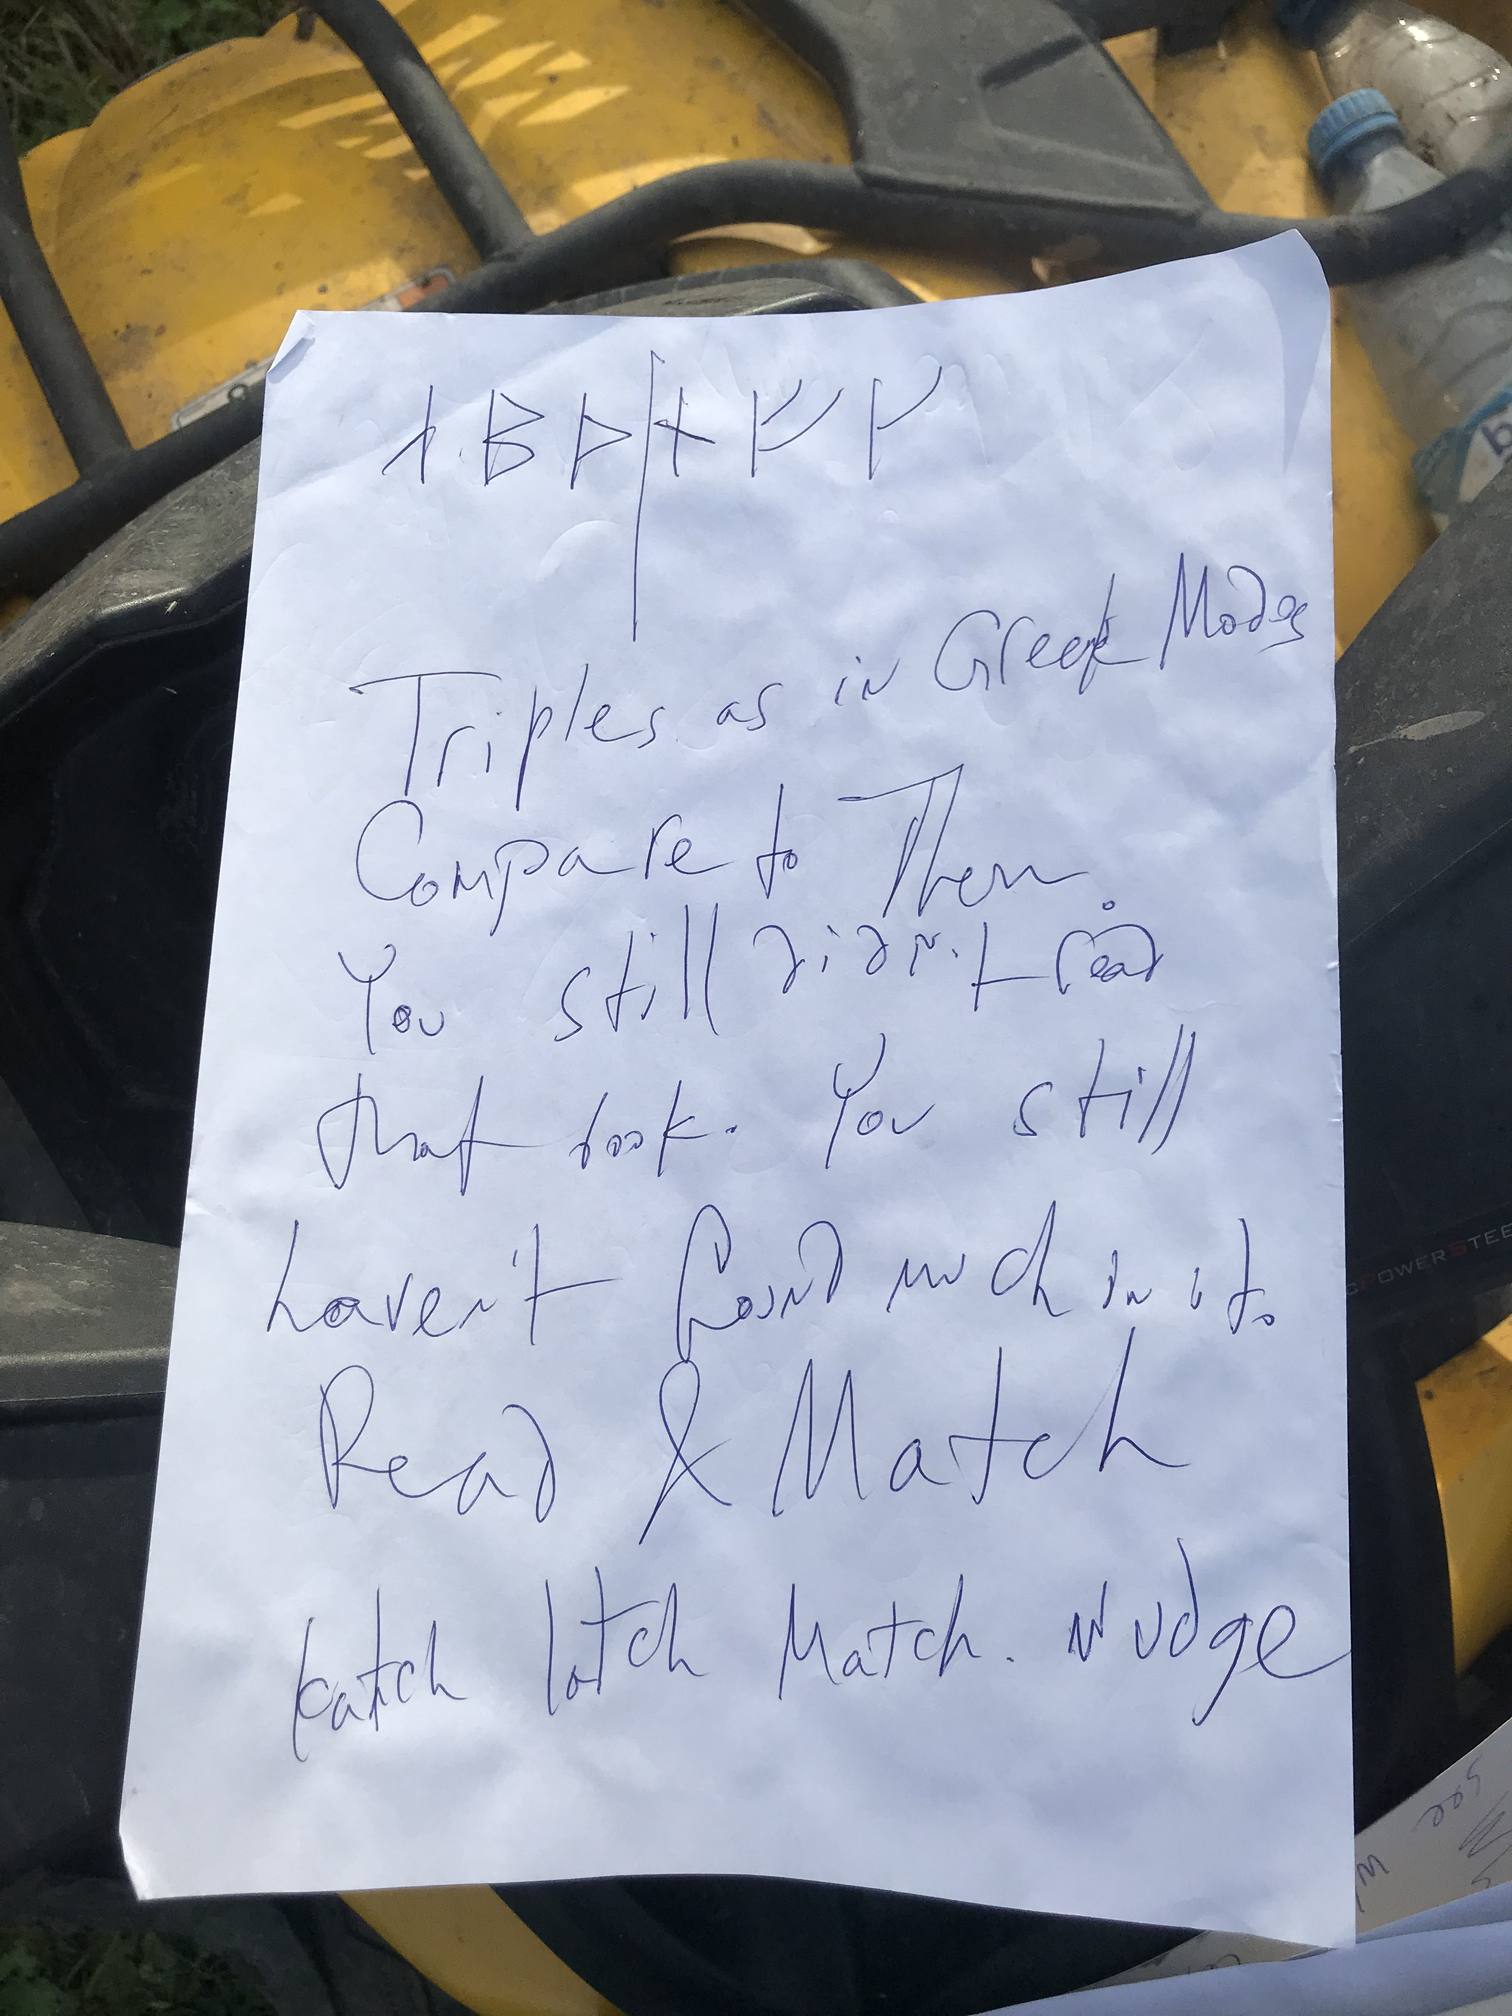 ᛐ ᛒ ᚦ | ᚾ ᚠ ᛚ
Triples as in Greek Modes
Compare to Them.
You still didn't read
that book. You still
haven't found much in it.
Read & Match
katch latch Match. Nudge
POWER STEE
see